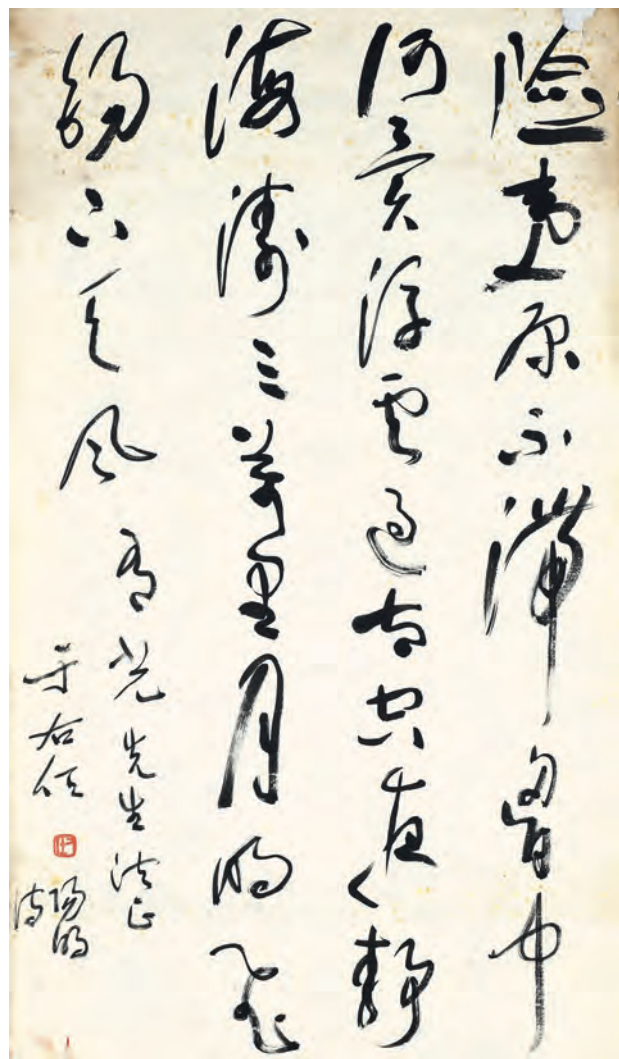 險夷原不滯胸中
何異浮雲過太空夜靜
海濤三萬里月明飛
錫下天風 光先生法正
于右任
陽明
詩